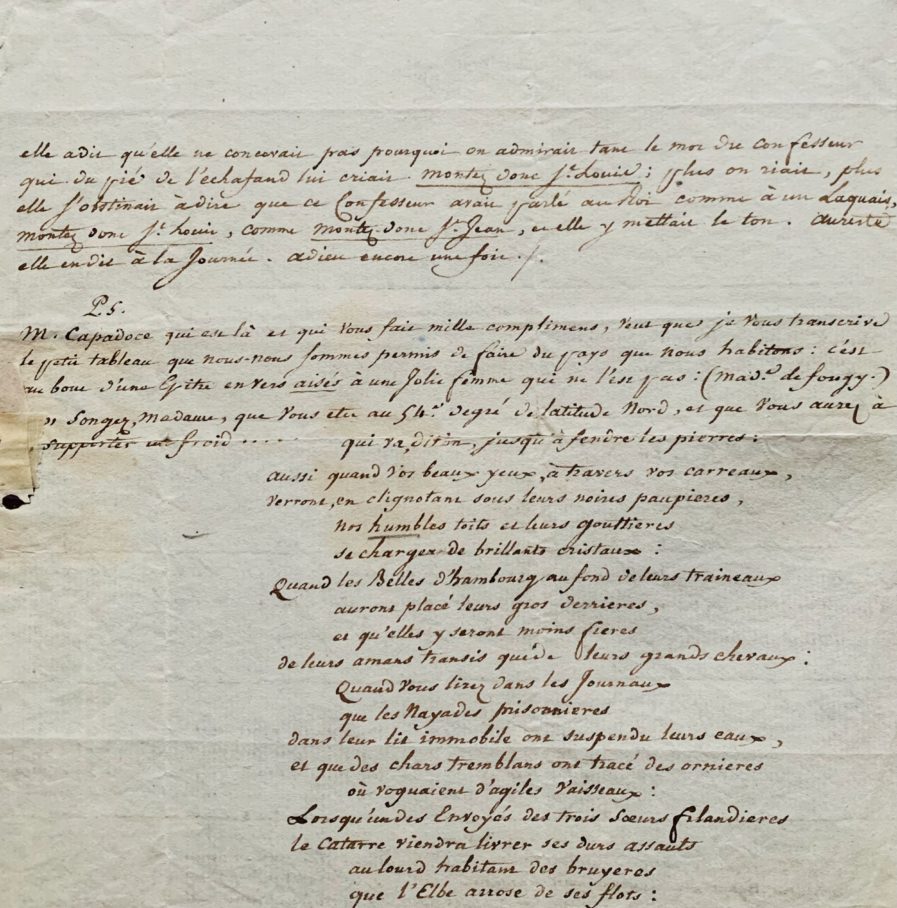 elle a dit qu'elle ne concevait pas pourquoi on admirait tant le mot du Confesseur
qui du pié de l'échafaud lui criait montez donc St. Louis; plus on riait, plus
elle s'obstinait à dire que ce Confesseur avait parlé au Roi comme à un Laquais,
montez donc St. Louis, comme montez donc St. Jean, et elle y mettait le ton. au reste
elle en dit à la Journée. adieu encore une fois.
P.S.
M. Capadoce qui est là et qui vous fait mille complimens, veut que je vous transcrive
le petit tableau que nous-nous sommes permis de faire du pays que nous habitons: c'est
au bout d'une Epitre en vers aisés à une Jolie femme qui ne l'est pas: (mad.e de fougy.)
" Songez, Madame, que vous etes au 54.e degré de latitude Nord, et que vous aurez à
supporter un froid .... qui va, dit-on, jusqu'à fendre les pierres:
aussi quand vos beaux yeux, à travers vos carreaux,
verront, en clignotant sous leurs noires paupieres,
nos humbles toits et leurs gouttieres
se charger de brillants cristaux:
Quand les Belles d'hambourg au fond de leurs traineaux
auront placé leurs gros derrieres,
et qu'elles y seront moins fieres
de leurs amans transis que de leurs grands chevaux:
Quand vous lirez dans les Journaux
que les Nayades prisonnieres
dans leur lit immobile ont suspendu leurs eaux,
et que des chars tremblans ont tracé des ornieres
où voguaient d'agiles vaisseaux:
Lorsqu'un des Envoyés des trois Sœurs filandieres
le Catarre viendra livrer ses durs assauts
au lourd habitant des bruyeres
que l'Elbe arrose de ses flots: